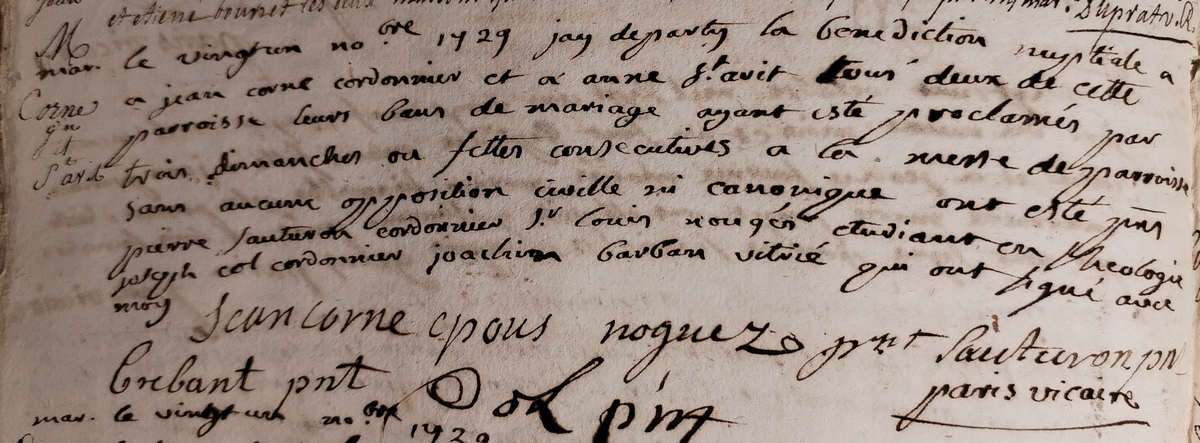 et etiene bournet Dupratv. R.
M
mar. le vingtun no.bre 1729 jay departy la benediction nuptiale a
Corne a jean corne cordonnier et a anne st. avit tous deux de cette
gn parroisse leurs bans de mariage ayant esté proclamés par
St. avit trois dimanches ou fettes consecutives a la messe de parroisse
sans aucune opposition civille ni canonique ont esté pns
pierre sauturon cordonnier sr. louis nougés etudiant en theologie
joseph col cordonnier joachim barban vitrié qui ont signé avec
moy
Jean corne epous noguez pnt sauturon pnt
brebant pnt Col pnt paris vicaire
mar. le vingtun no.bre 1729